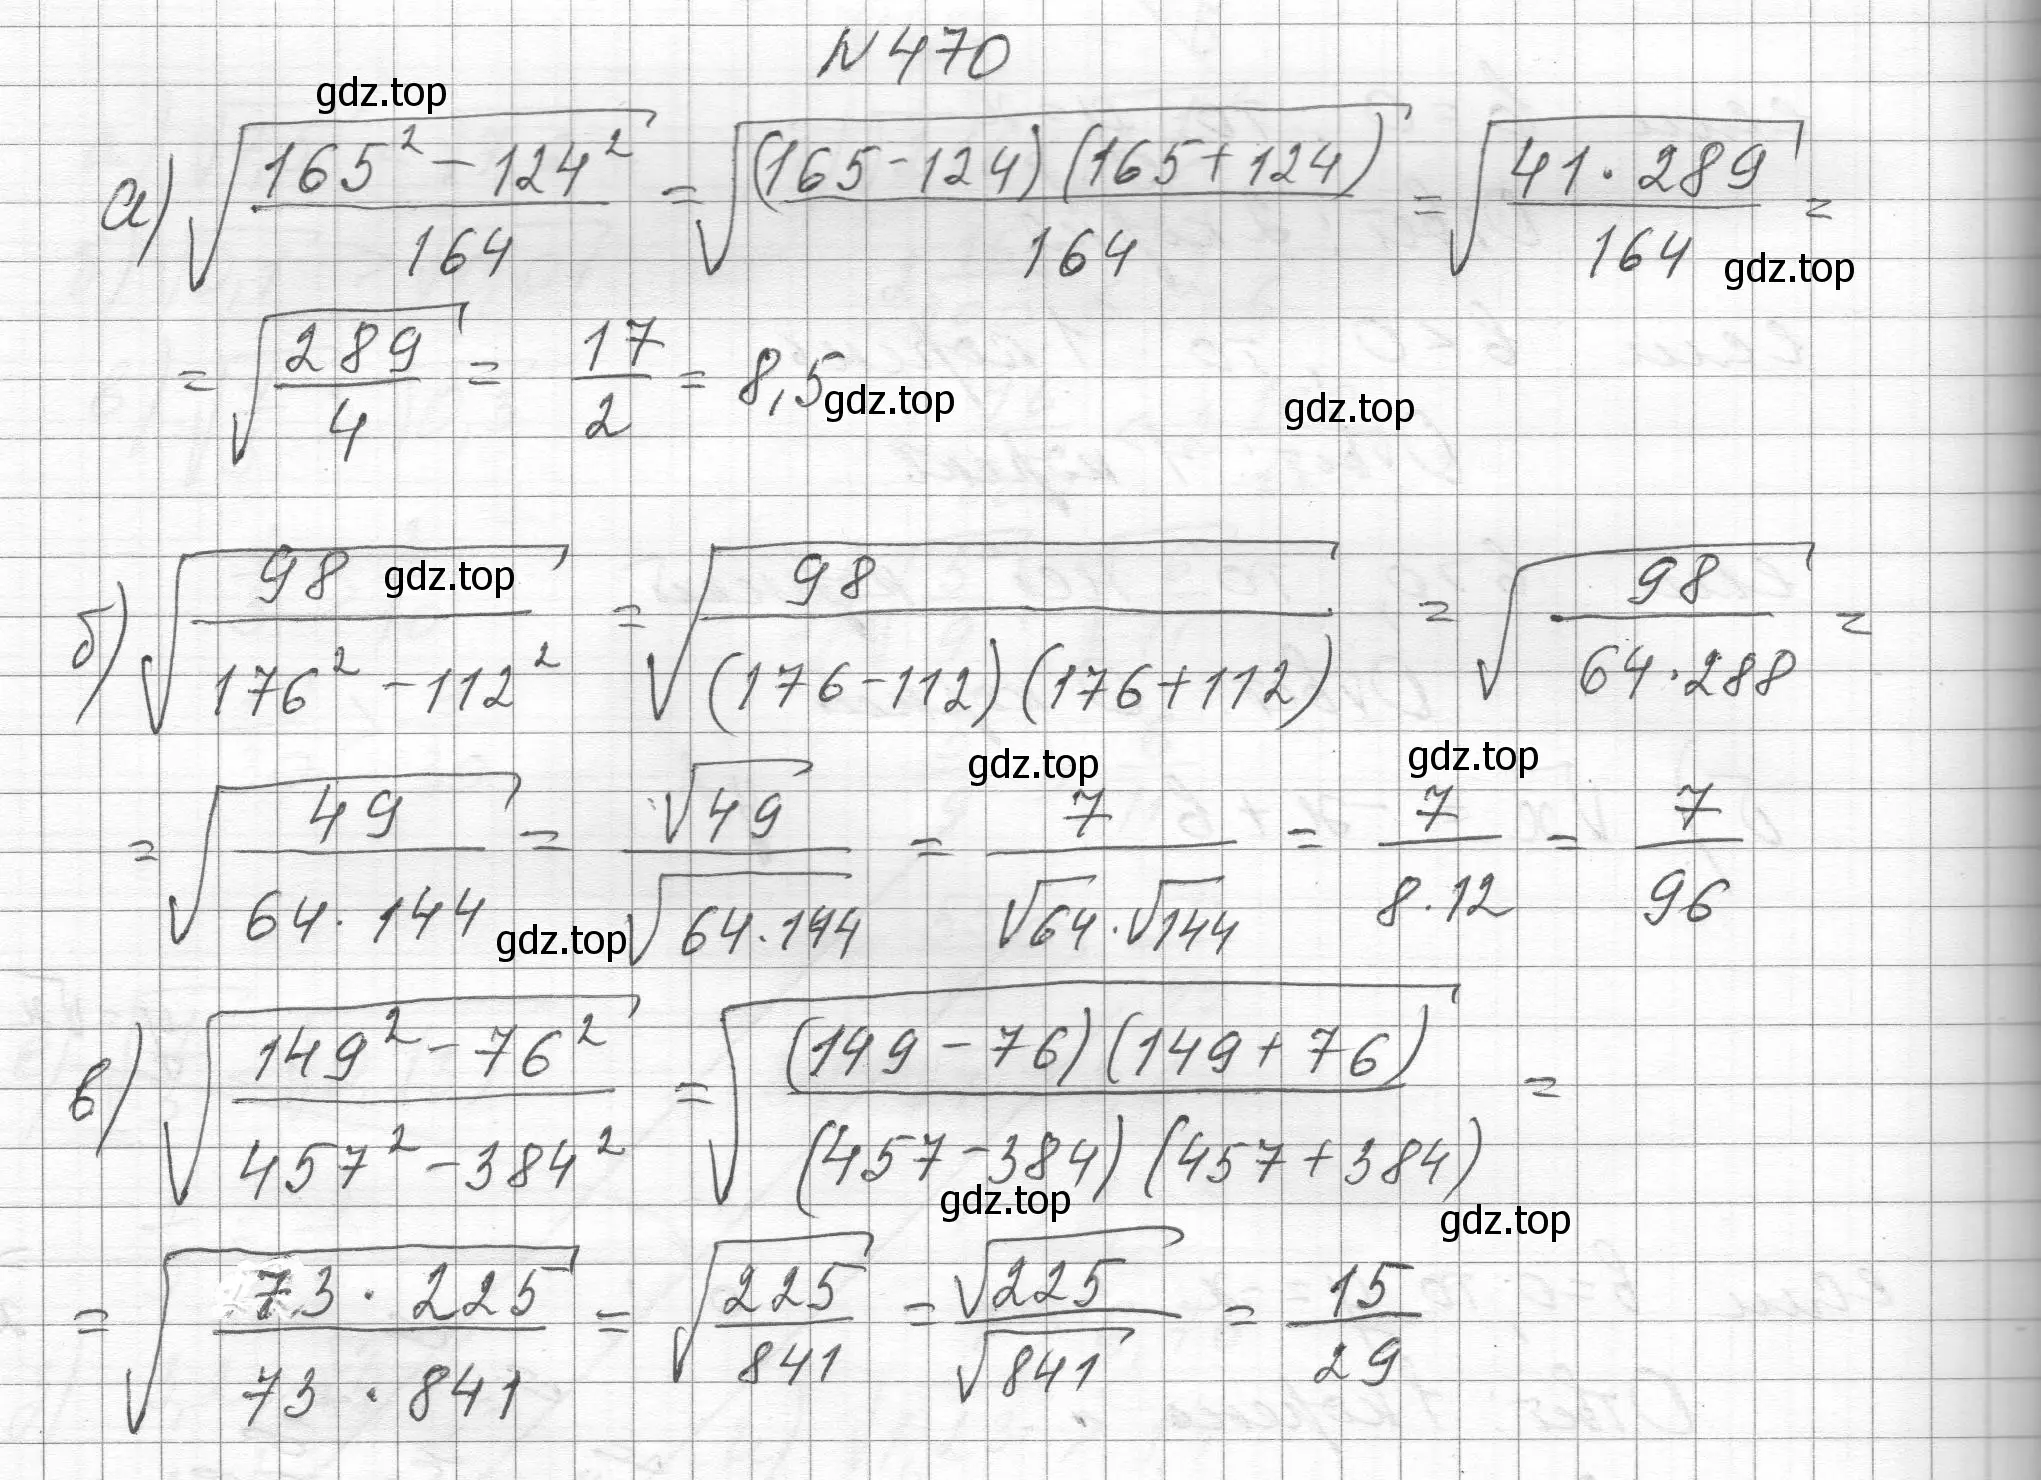 N470
gdz.top
а) √((165² - 124²)/164) = √((165-124)(165+124)/164) = √((41·289)/164) =
gdz.top
= √(289/4) = 17/2 = 8,5
gdz.top gdz.top
б) √(98/(176² - 112²)) = √(98/((176-112)(176+112))) = √(98/(64·288)) =
gdz.top
gdz.top gdz.top
= √(49/(64·144)) = √49/√(64·144) = 7/(√64·√144) = 7/(8·12) = 7/96
gdz.top
в) √((149² - 76²)/(457² - 384²)) = √((149-76)(149+76)/((457-384)(457+384))) =
gdz.top gdz.top
= √((73·225)/(73·841)) = √(225/841) = √225/√841 = 15/29